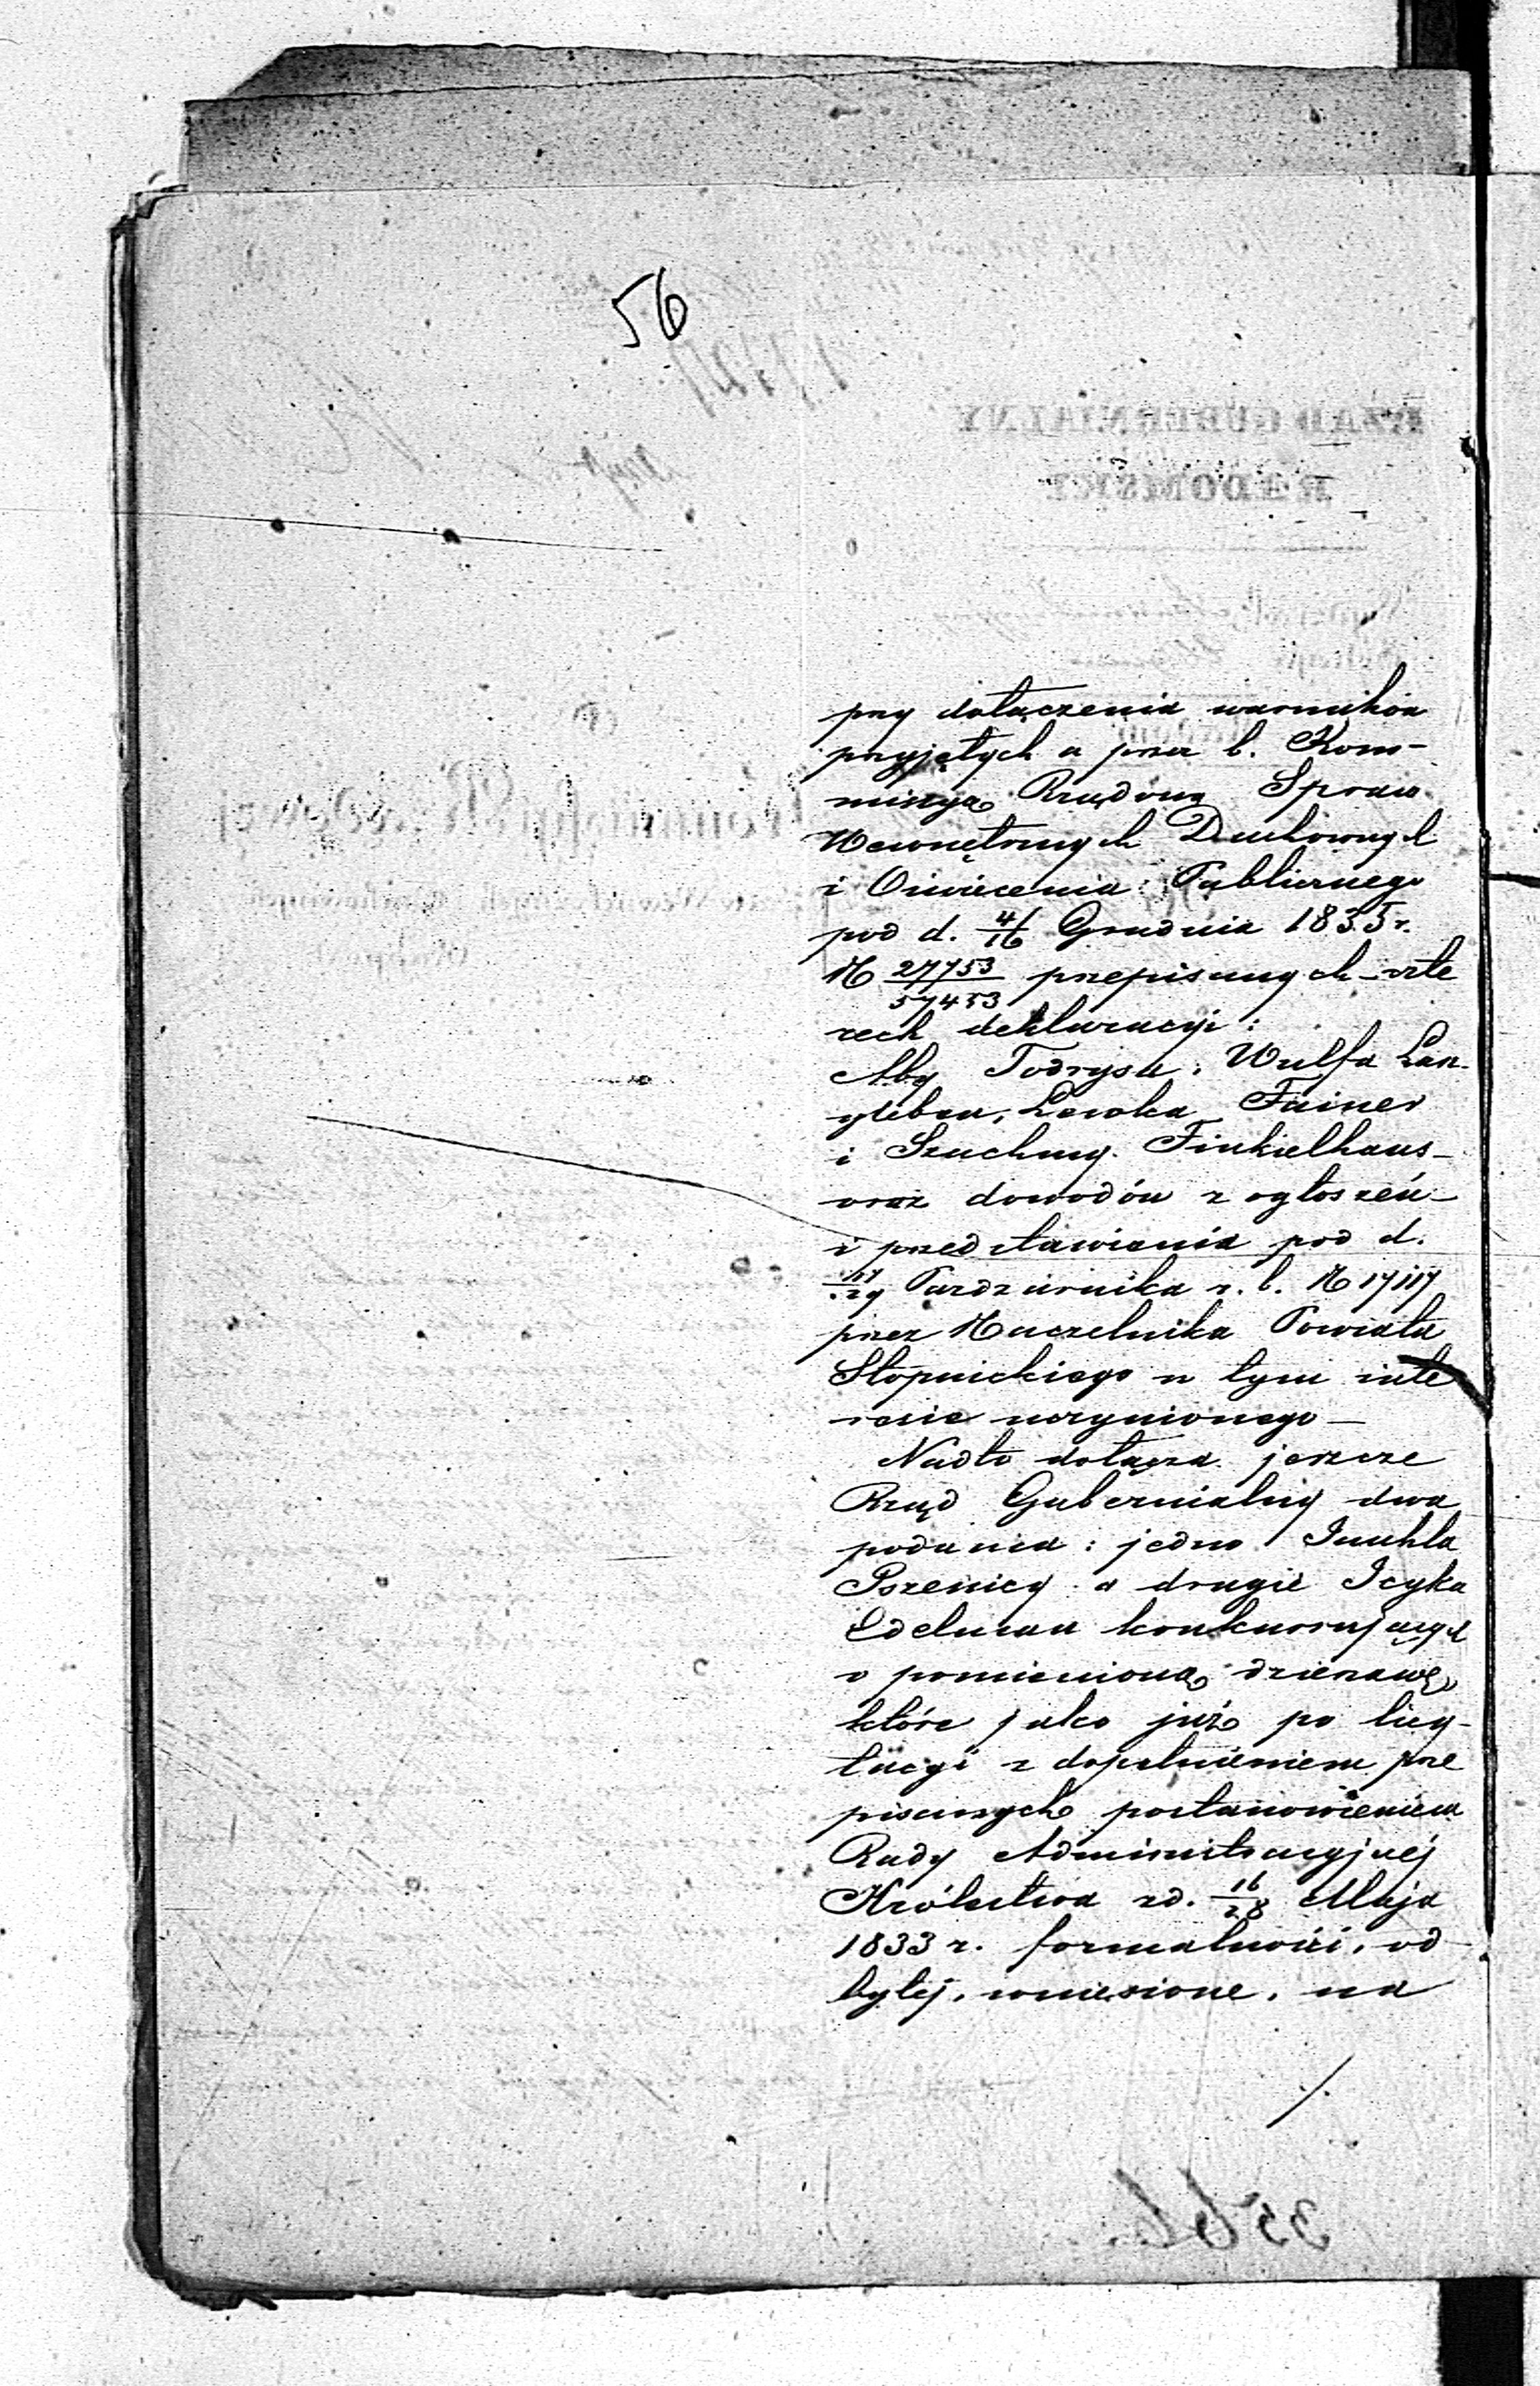 56
przy dołączenia warunków
przyjętych a przez b. Kom-
missyą Rządową Spraw
Wewnętrznych Duchownych
i Oświecenia Publicznego
pod d. 4/16 Grudnia 1835 r.
N 27753/57453 przepisanych czte
rech deklaracyi:
Aby Todrysa, Wulfa Lan-
gleben, Lewka Fainer
i Szachny Finkielhaus
oraz dowodów z ogłoszeń
i przedstawienia pod d.
17/29 Pazdziernika r. b. N 17117
przez Naczelnika Powiatu
Stopnickiego w tym inte
resie uczynionego —
Nadto dołącza jeszcze
Rząd Gubernialny dwa
podania: jedno
Pszenicy a drugie Icyka
Edelman konkurujących
o pomienioną dzierzawę,
które jako już po licy-
tacyi z dopełnieniem prze
pisanych postanowieniem
Rady Administracyjnej
Królestwa z d. 16/28 Maja
1833 r. formalności, od
bytej, wniesione, na
./.